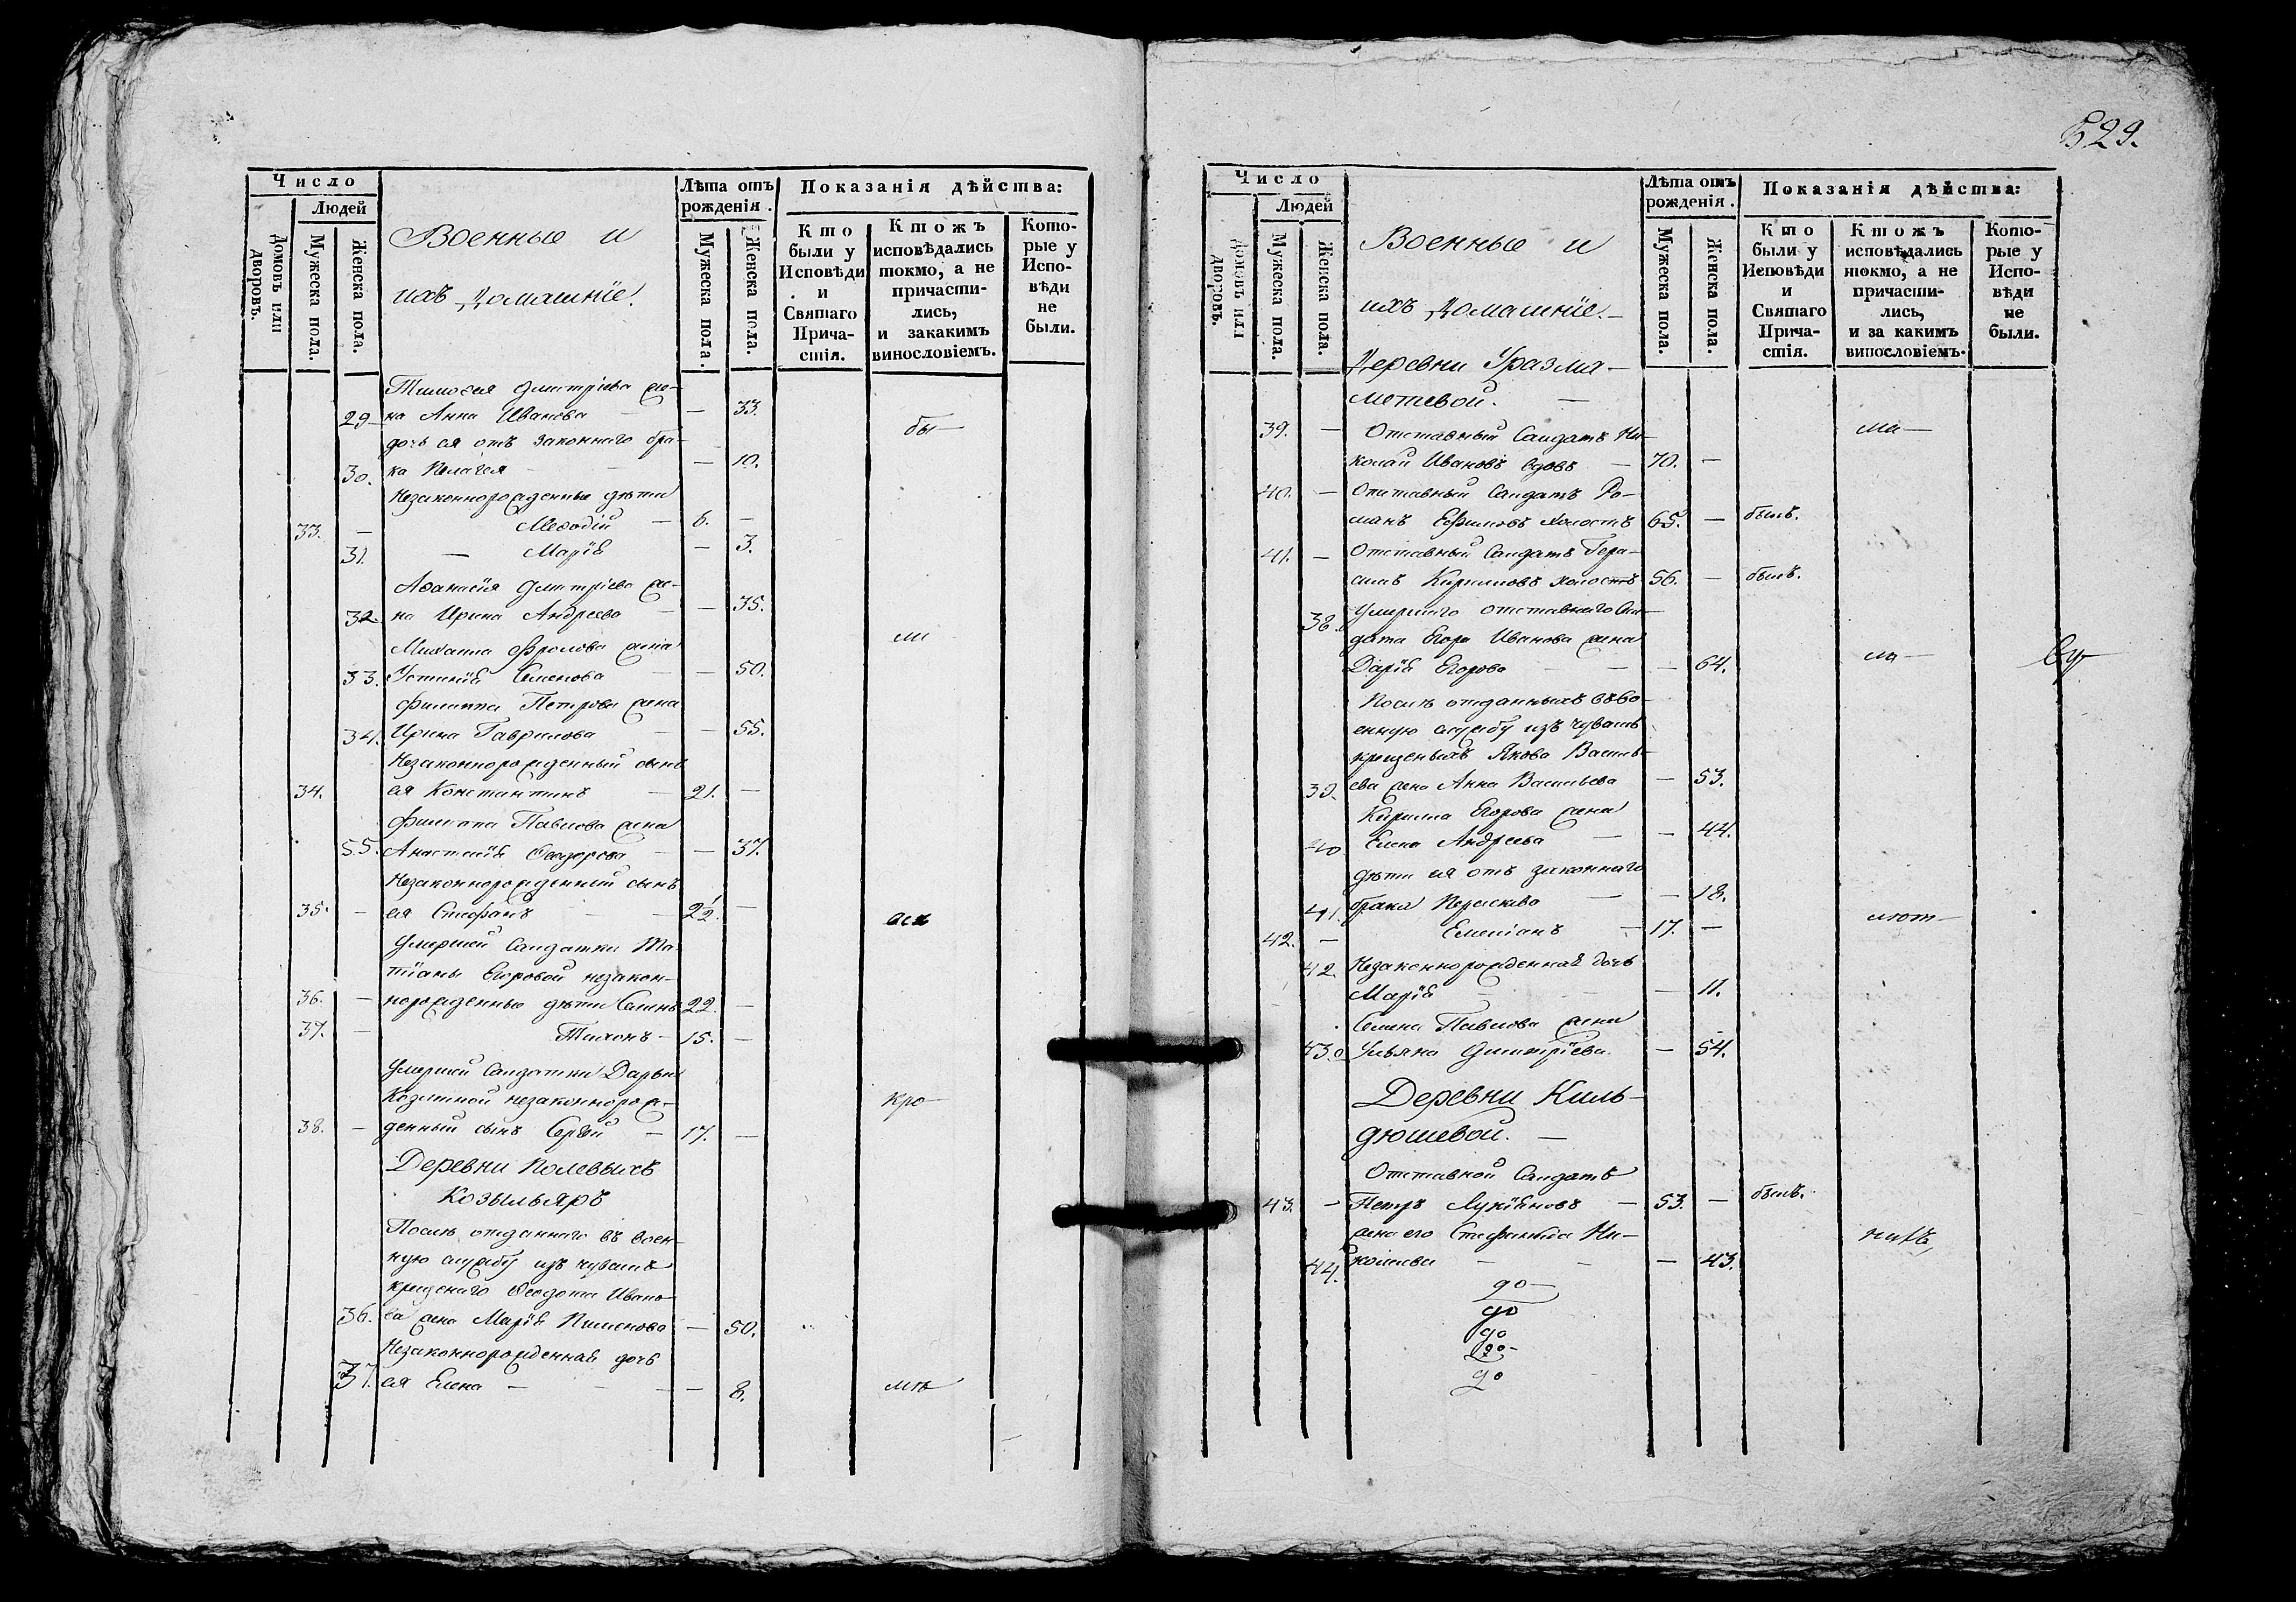 Число
Людей
Домовъ или дворовъ.
Мужеска пола.
Женска пола.
Военные и
ихъ домашніе.
Лѣта отъ
рожденія.
Мужеска пола.
Женска пола.
Показанія дѣйства:
Кто
были у
Исповѣди
и
Святаго
Прича-
стія.
Ктожъ
исповѣдались
токмо, а не
причасти-
лись,
и закакимъ
винословіемъ.
Кото-
рые у
Испо-
вѣди
не
были.
Тимоѳея Дмитріева же-
29 на Анна Иванова — 33.
бы-
дочь ея отъ законнаго бра-
30. ка Пелагея — 10.
Незаконнорожденные дѣти
33. — Меѳодій — 6. —
31. — Марія — 3.
Аѳанасія Дмитріева же-
32. на Ирина Андреева — 35.
Михаила Фролова жена
ли
33. Устинія Семенова — 50.
Филиппа Петрова жена
34. Ирина Гаврилова — 55.
Незаконнорожденный сынъ
34. ея Константинъ — 21. —
Филиппа Павлова жена
55. Анастасія Ѳеодорова — 37.
Незаконнорожденный сынъ
35. — ея Стефанъ — 2½. —
Умершей Солдатки Та-
тіаны Егоровой незакон-
36. — норожденные дѣти Семенъ 22. —
37. — Тихонъ — 15. —
Умершей Солдатки Дарьи
Козминой незаконнорож-
кро-
38. — денный сынъ Сергѣй — 17. —
Деревни Полевыхъ
Козыльяръ
Послѣ отданнаго въ воен-
ную службу изъ чувашъ
крещенаго Ѳеодота Ивано-
36. ва жена Марія Пименова — 50.
Незаконнорожденная дочь
37. ея Елена — 8.
мѣ
529.
Число
Людей
Домовъ или дворовъ.
Мужеска пола.
Женска пола.
Военные и
ихъ домашніе.
Лѣта отъ
рожденія.
Мужеска пола.
Женска пола.
Показанія дѣйства:
Кто
были у
Исповѣди
и
Святаго
Прича-
стія.
Ктожъ
исповѣдались
токмо, а не
причасти-
лись,
и за какимъ
винословіемъ.
Кото-
рые у
Испо-
вѣди
не
были.
Деревни Уразма-
метевой. —
39. — Отставный Солдатъ Ни-
ма-
колай Ивановъ вдовъ — 70. —
40. — Отставный Солдатъ Ро-
манъ Ефимовъ холостъ 65. — былъ.
41. — Отставный Солдатъ Гера-
симъ Кириловъ холостъ 56. — былъ.
38. Умершаго отставнаго Сол-
дата Егора Иванова жена
Дарія Егорова — 64.
ло-
Послѣ отданныхъ въ во-
енную службу изъ чувашъ
крещеныхъ Якова Василь-
39. ева жена Анна Васильева — 53.
Кирилла Егорова жена
40 Елена Андреева — 44.
дѣти ея отъ законнаго
41. брака Параскева — 18.
42. — Емеліанъ — 17. —
42. Незаконнорожденная дочь
Марія — 11.
Семена Павлова жена
43. Ульяна Дмитріева — 54.
Деревни Киль-
дюшевой. —
Отставной Солдатъ
43. — Петръ Лукіановъ — 53. — былъ.
жена его Стефанида Ни-
44. колаева — 43.
до
до
до
до
до